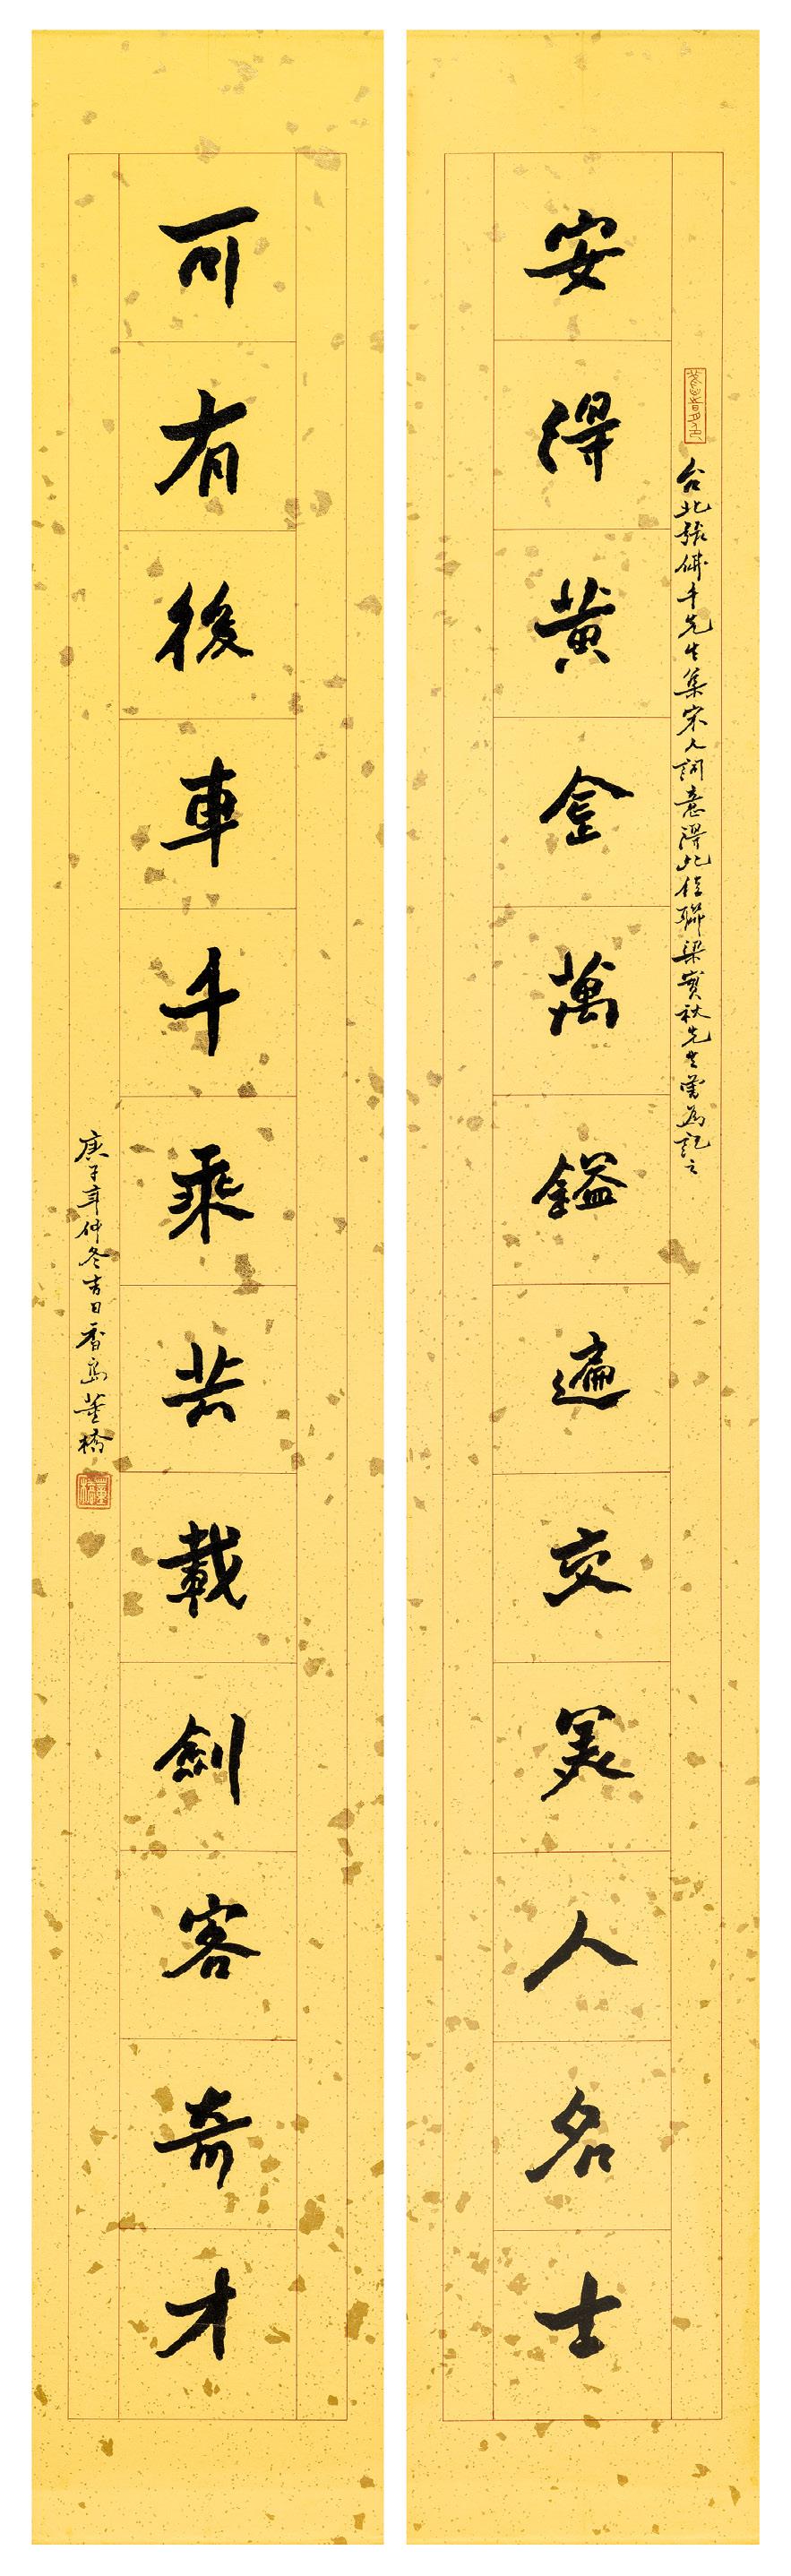 舊時月色
台北張佛千先生集宋人詞意得此佳聯梁實秋先生嘗為記之
安得黃金萬鎰遍交美人名士
可有後車千乘共載劍客奇才
庚子年仲冬吉日香島董橋
董橋